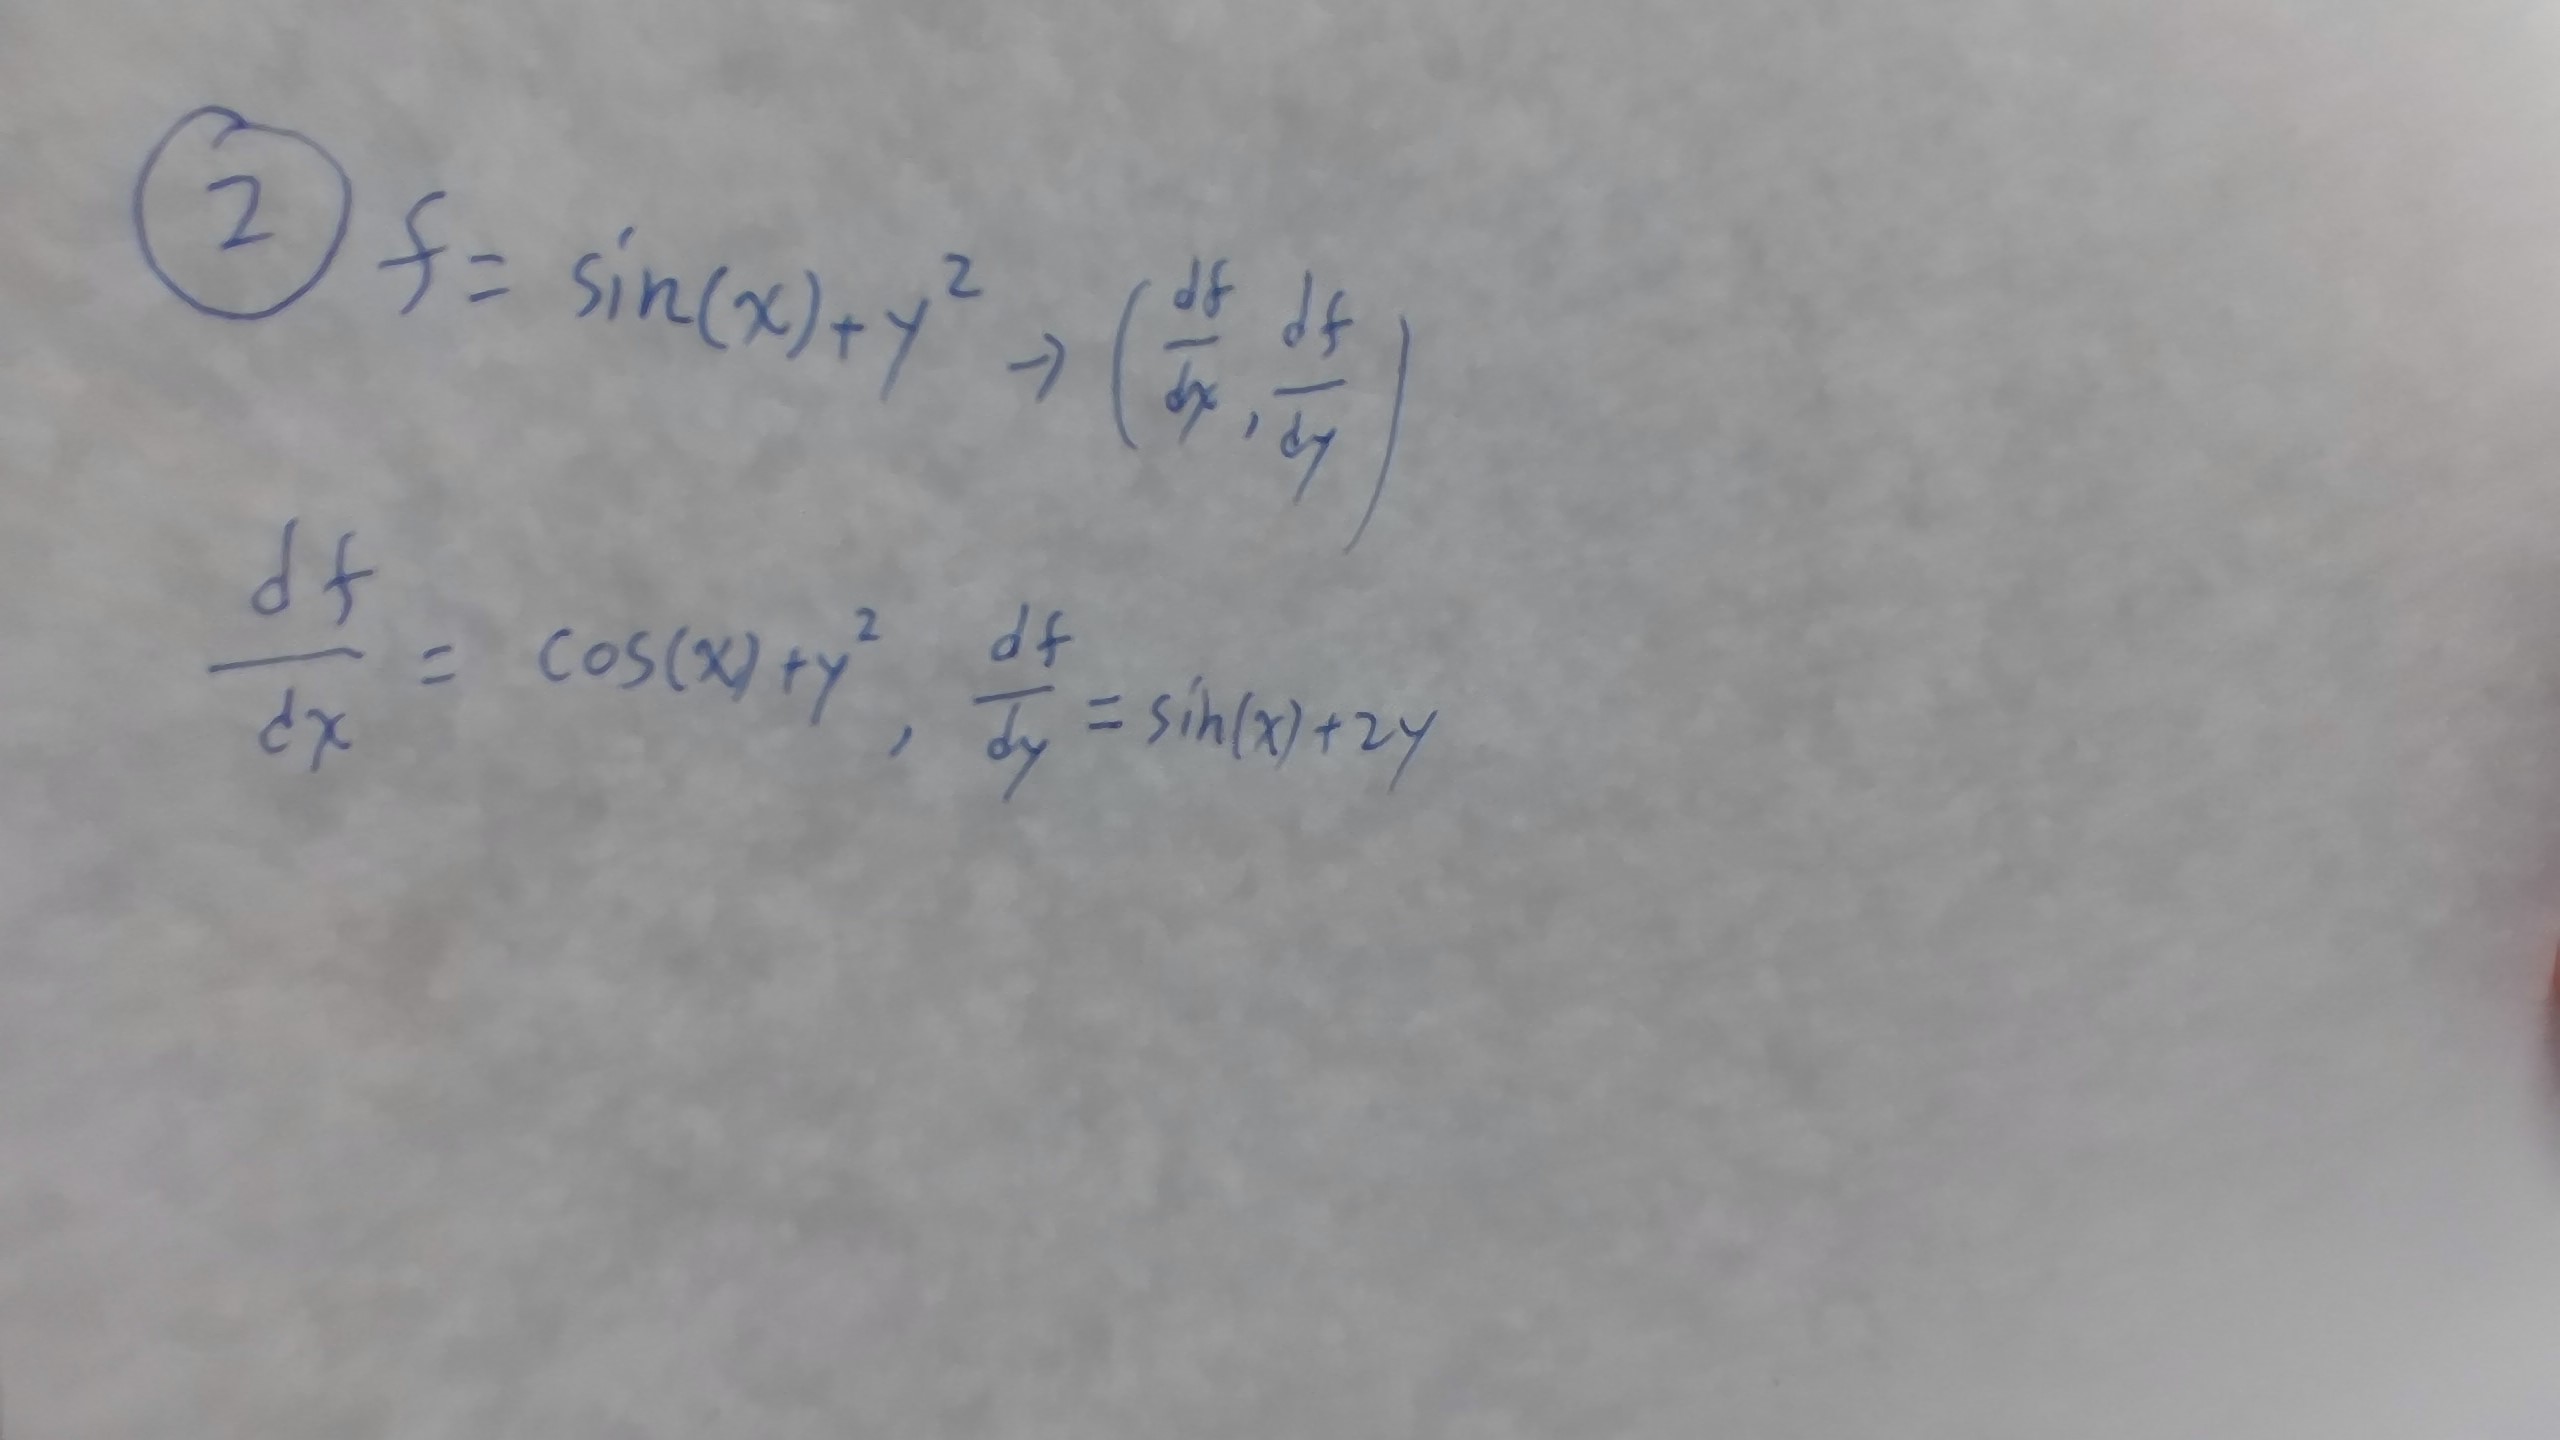 ② f = sin(x) + y² → (df/dx, df/dy)
df/dx = cos(x) + y², df/dy = sin(x) + 2y